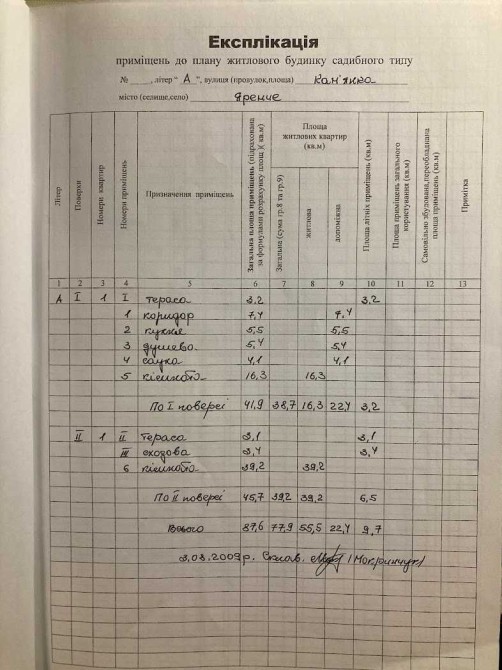 Експлікація
приміщень до плану житлового будинку садибного типу
№ ____, літер " А ", вулиця (провулок,площа) Кам'янка
місто (селище,село) Яремче
Літер
Поверхи
Номери квартир
Номери приміщень
Призначення приміщень
Загальна площа приміщень (підрахована за формулами розрахунку площ)( кв.м)
Площа житлових квартир (кв.м)
Загальна (сума гр.8 та гр.9)
житлова
допоміжна
Площа літніх приміщень (кв.м)
Площа приміщень загального користування (кв.м)
Самовільно збудована,переобладнана площа приміщень (кв.м)
Примітка
1 2 3 4 5 6 7 8 9 10 11 12 13
А I 1 I тераса 3,2 3,2
1 коридор 7,4 7,4
2 кухня 5,5 5,5
3 душева 5,4 5,4
4 сауна 4,1 4,1
5 кімната 16,3 16,3
По I поверсі 41,9 38,7 16,3 22,4 3,2
II 1 II тераса 3,1 3,1
III сходова 3,4 3,4
6 кімната 39,2 39,2
По II поверсі 45,7 39,2 39,2 6,5
Всього 87,6 77,9 55,5 22,4 9,7
3.03.2009р. Склав.